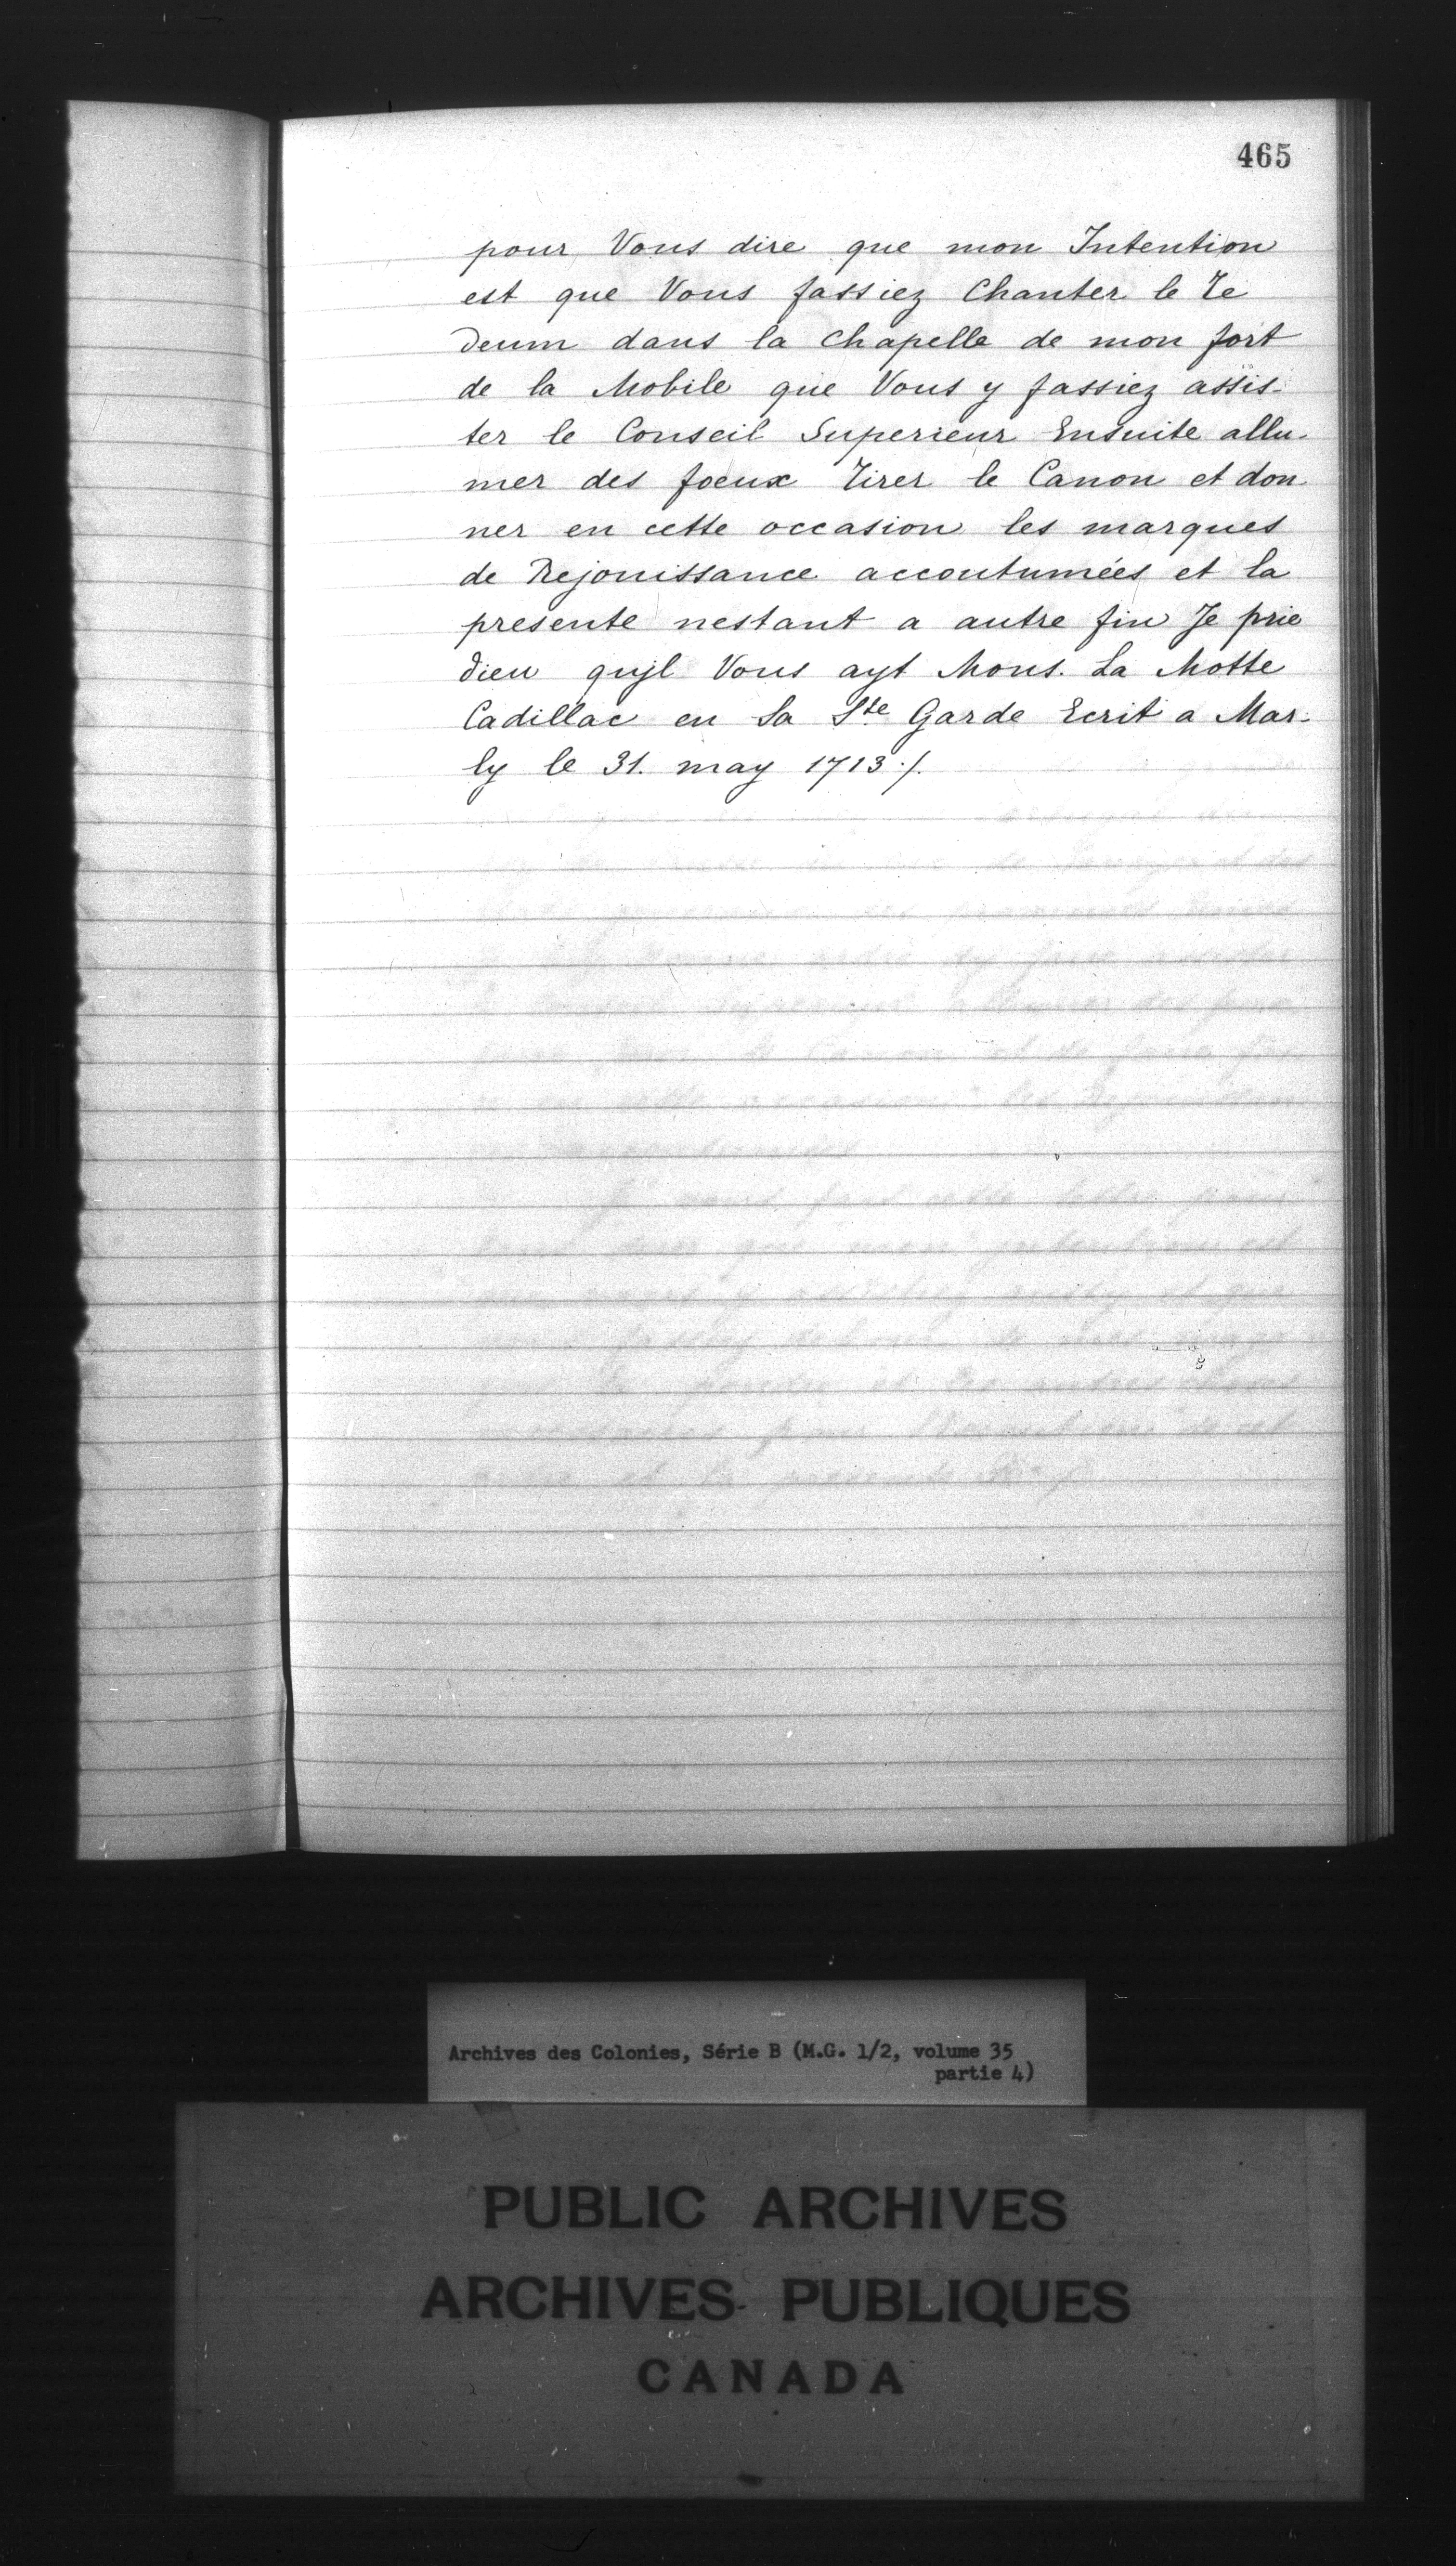 465
pour Vous dire que mon Intention
est que Vous fassiez Chanter le Te
Deum dans la Chapelle de mon fort
de la Mobile que Vous y fassiez assis-
ter le Conseil Superieur Ensuite allu-
mer des foeux Tirer le Canon et don
ner en cette occasion les marques
de Rejouissance accoutumées et la
presente nestant a autre fin Je prie
Dieu qujl Vous ayt Mons. La Motte
Cadillac en Sa Ste Garde Ecrit a Mar-
ly le 31. may 1713 ./.
Archives des Colonies, Série B (M.G. 1/2, volume 35
partie 4)
PUBLIC ARCHIVES
ARCHIVES PUBLIQUES
CANADA